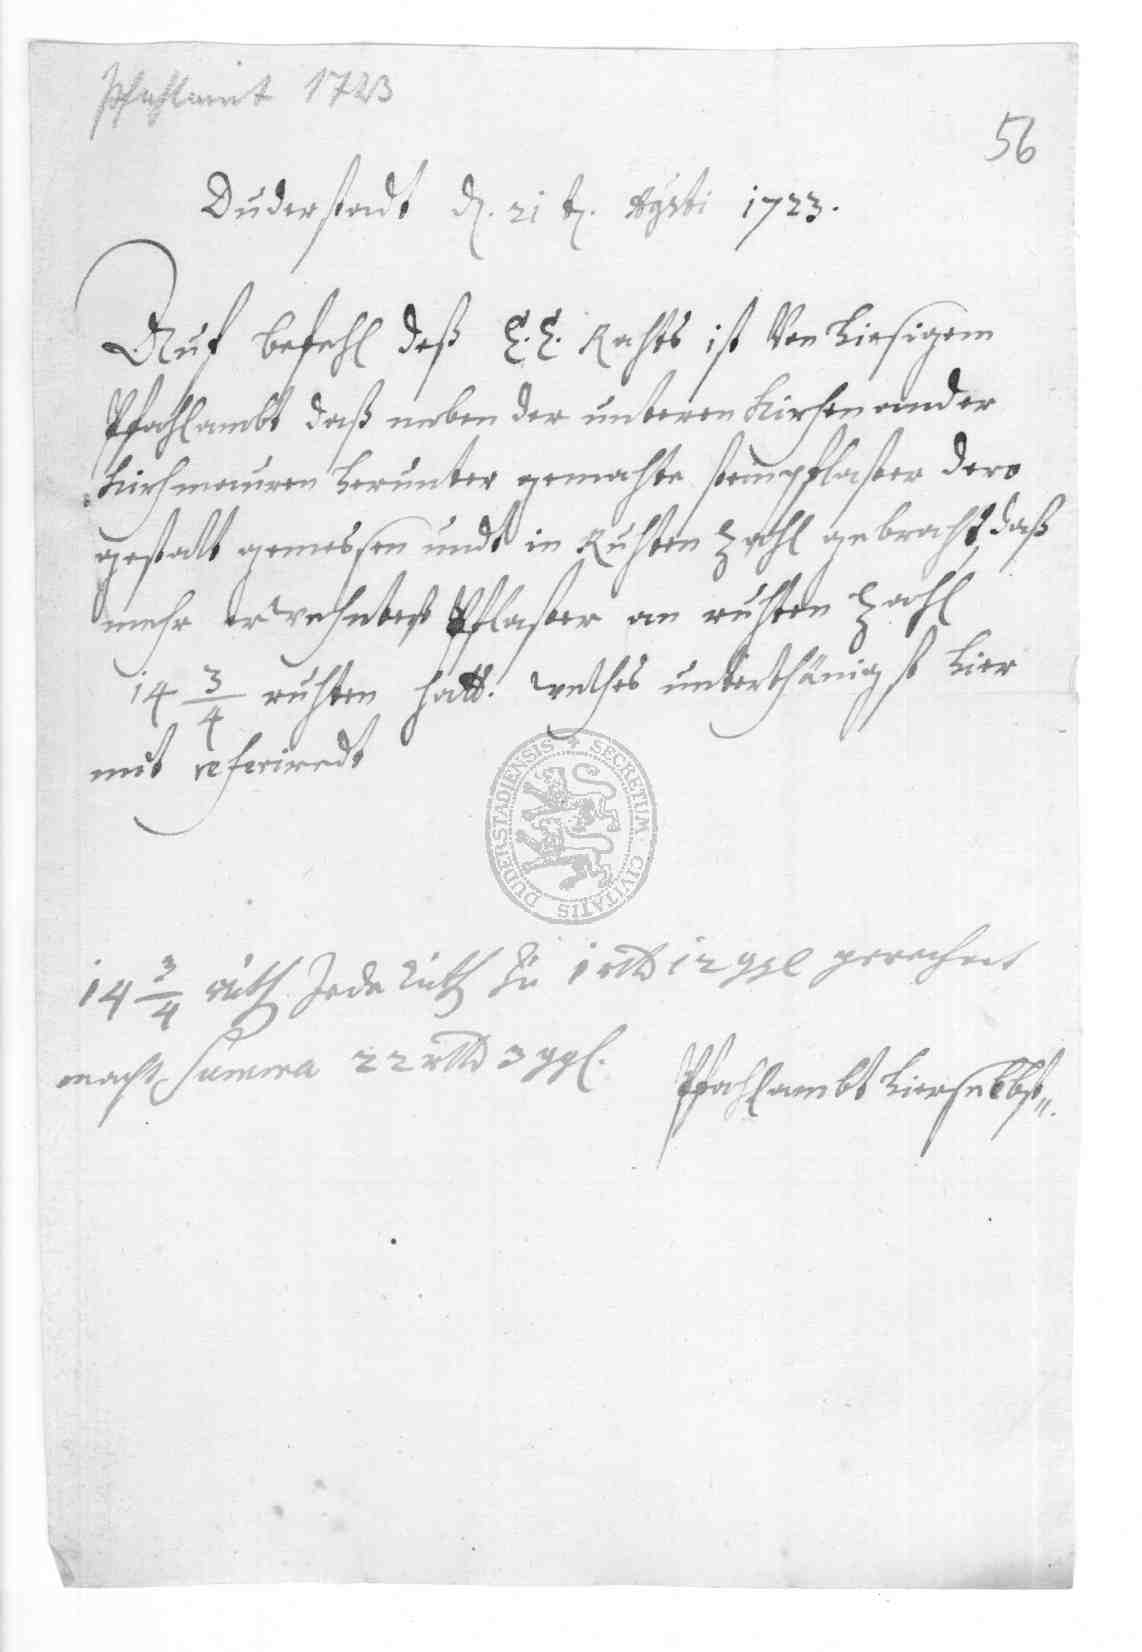 Pfahlamt 1723
56
Duderstadt d. 21 t. Agsti 1723.
Auf befehl deß E. E. Rahts ist Von hiesigem
Pfahlambt daß neben der unteren Kirchen an der
Kirchmauren herunter gemachte steinpflaster dero
gestalt gemessen undt in Ruhten zahl gebracht, daß
mehr erwehntes Pflaster an ruhten zahl
14 3/4 ruhten hatt. welches unterthänigst hier
mit referiredt
DUDERSTADIENSIS + SECRETUM CIVITATIS
14 3/4 ruth Jede ruth zu 1 rthl 12 ggl gerechnet
macht Summa 22 rthl 3 ggl.
Pfahlambt hierselbst